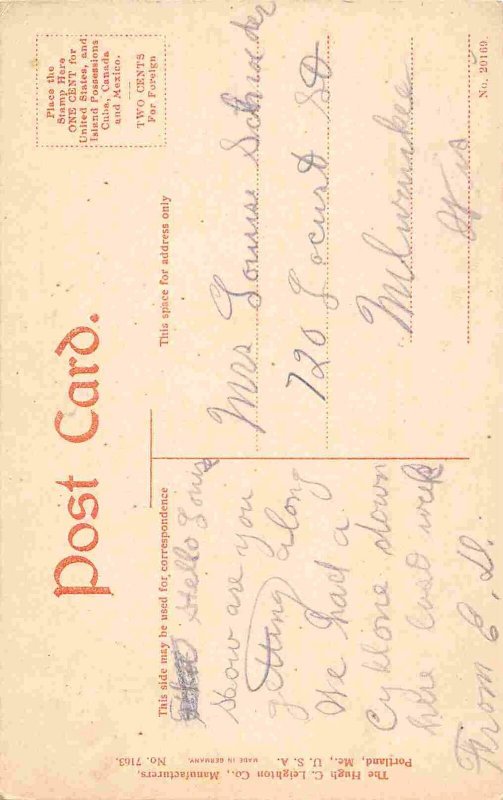 Post Card.
Place the
Stamp Here
ONE CENT for
United States, and
Island Possessions
Cuba, Canada
and Mexico.
TWO CENTS
For Foreign
This side may be used for correspondence
This space for address only
Hello Louis
How are you
getting along
We had a
Cyklone down
here last week
From C. D.
Mrs Louise Schrinder
720 Locust St
Milwaukee
Wis
No. 20169.
The Hugh C. Leighton Co., Manufacturers,
Portland, Me., U. S. A. MADE IN GERMANY. No. 7163.